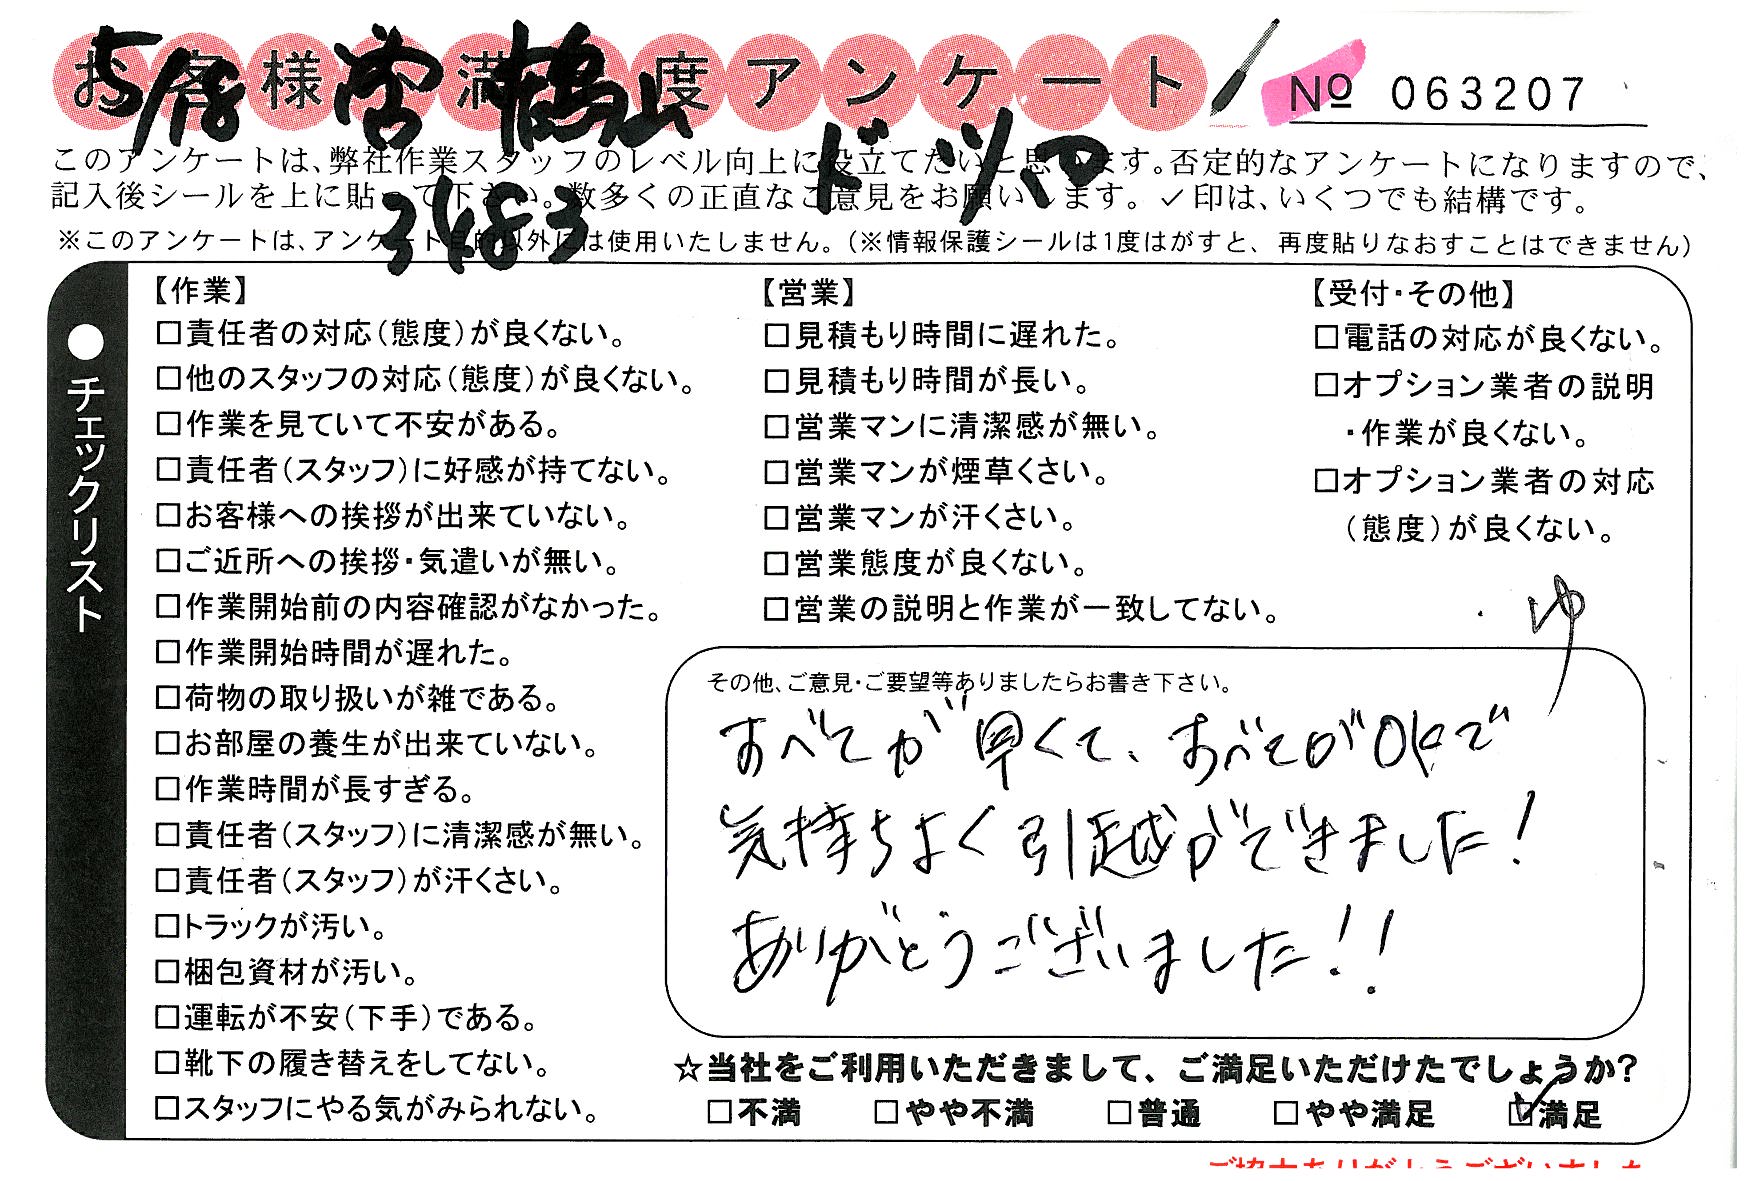 お客様満足度アンケート
№ 063207
5/18 営 鶴山
ド ツマ
3483
このアンケートは、弊社作業スタッフのレベル向上に役立てたいと思います。否定的なアンケートになりますので、
記入後シールを上に貼って下さい。数多くの正直なご意見をお願いします。✓印は、いくつでも結構です。
※このアンケートは、アンケート目的以外には使用いたしません。（※情報保護シールは1度はがすと、再度貼りなおすことはできません）
●チェックリスト
【作業】
□責任者の対応（態度）が良くない。
□他のスタッフの対応（態度）が良くない。
□作業を見ていて不安がある。
□責任者（スタッフ）に好感が持てない。
□お客様への挨拶が出来ていない。
□ご近所への挨拶・気遣いが無い。
□作業開始前の内容確認がなかった。
□作業開始時間が遅れた。
□荷物の取り扱いが雑である。
□お部屋の養生が出来ていない。
□作業時間が長すぎる。
□責任者（スタッフ）に清潔感が無い。
□責任者（スタッフ）が汗くさい。
□トラックが汚い。
□梱包資材が汚い。
□運転が不安（下手）である。
□靴下の履き替えをしてない。
□スタッフにやる気がみられない。
【営業】
□見積もり時間に遅れた。
□見積もり時間が長い。
□営業マンに清潔感が無い。
□営業マンが煙草くさい。
□営業マンが汗くさい。
□営業態度が良くない。
□営業の説明と作業が一致してない。
【受付・その他】
□電話の対応が良くない。
□オプション業者の説明
・作業が良くない。
□オプション業者の対応
（態度）が良くない。
ゆ
その他、ご意見・ご要望等ありましたらお書き下さい。
すべてが早くて、すべてがOKで
気持ちよく引越ができました！
ありがとうございました！！
☆当社をご利用いただきまして、ご満足いただけたでしょうか？
□不満 □やや不満 □普通 □やや満足 ☑満足
ご協力ありがとうございました